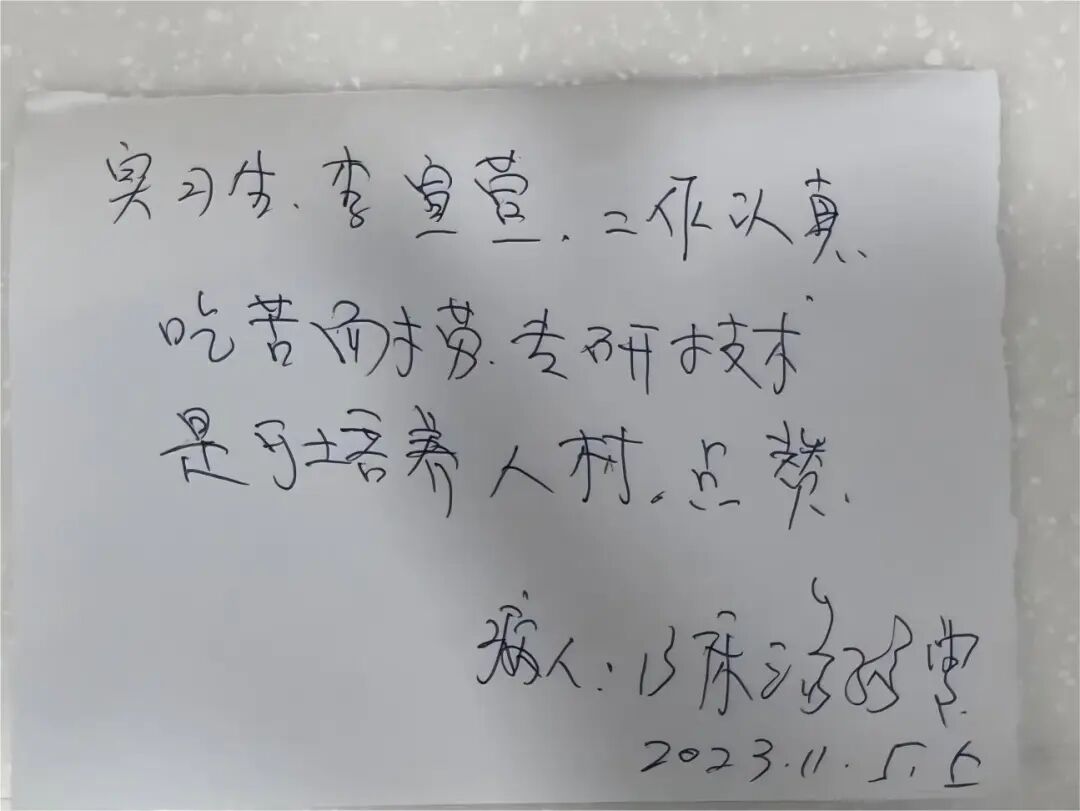 实习生.李宜萱.工作认真
吃苦而才劳.专研技术
是可培养人材.点赞.
病人:13床
2023.11.5.上